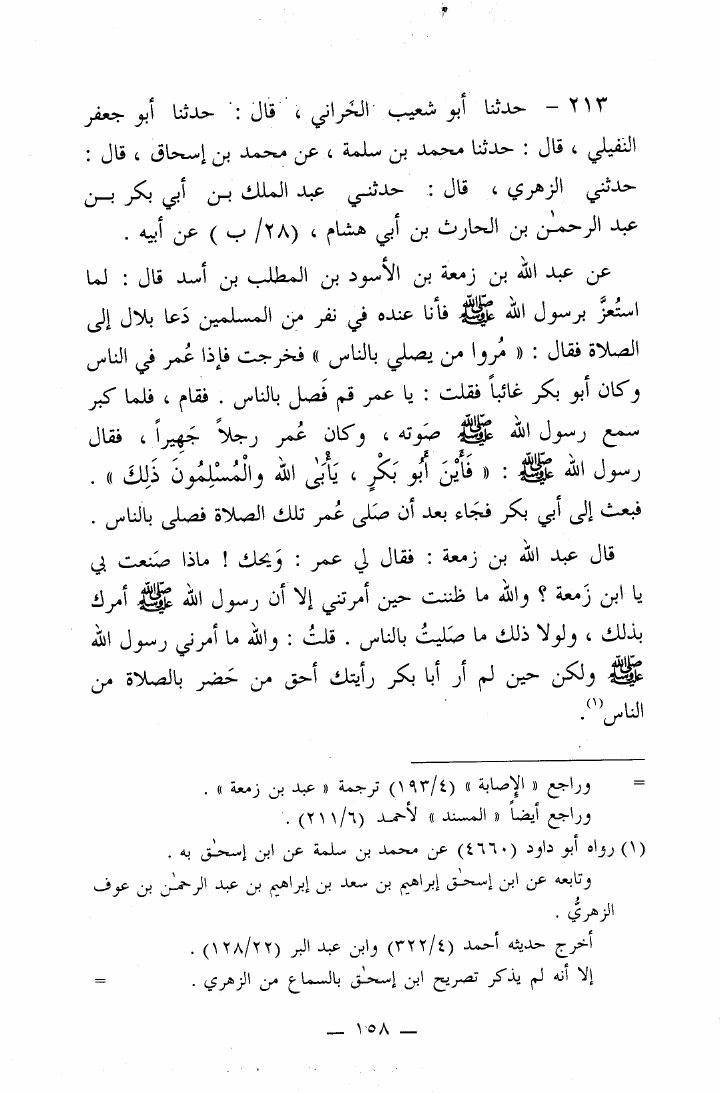 ٢١٣ – حدثنا أبو شعيب الخَراني ، قال : حدثنا أبو جعفر
النفيلي ، قال : حدثنا محمد بن سلمة ، عن محمد بن إسحاق ، قال :
حدثني الزهري ، قال : حدثني عبد الملك بن أبي بكر بن
عبد الرحمٰن بن الحارث بن أبي هشام ، (٢٨/ ب ) عن أبيه .
عن عبد الله بن زمعة بن الأسود بن المطلب بن أسد قال : لما
استُعزَّ برسول الله ﷺ فأنا عنده في نفر من المسلمين دَعا بلال إلى
الصلاة فقال : « مُروا من يصلي بالناس » فخرجت فإذا عُمر في الناس
وكان أبو بكر غائباً فقلت : يا عمر قم فَصل بالناس . فقام ، فلما كبر
سمع رسول الله ﷺ صَوته ، وكان عُمر رجلاً جَهيراً ، فقال
رسول الله ﷺ : « فَأَيْنَ أَبُو بَكْرٍ ، يَأْبَى الله والْمُسْلِمُونَ ذَلِكَ » .
فبعث إلى أبي بكر فجَاء بعد أن صَلى عُمر تلك الصلاة فصلى بالناس .
قال عبد الله بن زمعة : فقال لي عمر : وَيحك ! ماذا صَنعت بي
يا ابن زَمعة ؟ والله ما ظننت حين أمرتني إلا أن رسول الله ﷺ أمرك
بذلك ، ولولا ذلك ما صَليتُ بالناس . قلتُ : والله ما أمرني رسول الله
ﷺ ولكن حين لم أر أبا بكر رأيتك أحق من حَضر بالصلاة من
الناس(١).
= وراجع « الإصابة » (١٩٣/٤) ترجمة « عبد بن زمعة » .
وراجع أيضاً « المسند » لأحمد (٢١١/٦) .
(١) رواه أبو داود (٤٦٦٠) عن محمد بن سلمة عن ابن إسحٰق به .
وتابعه عن ابن إسحٰق إبراهيم بن سعد بن إبراهيم بن عبد الرحمٰن بن عوف
الزهريُّ .
أخرج حديثه أحمد (٣٢٢/٤) وابن عبد البر (١٢٨/٢٢) .
إلا أنه لم يذكر تصريح ابن إسحٰق بالسماع من الزهري . =
– ١٥٨ –